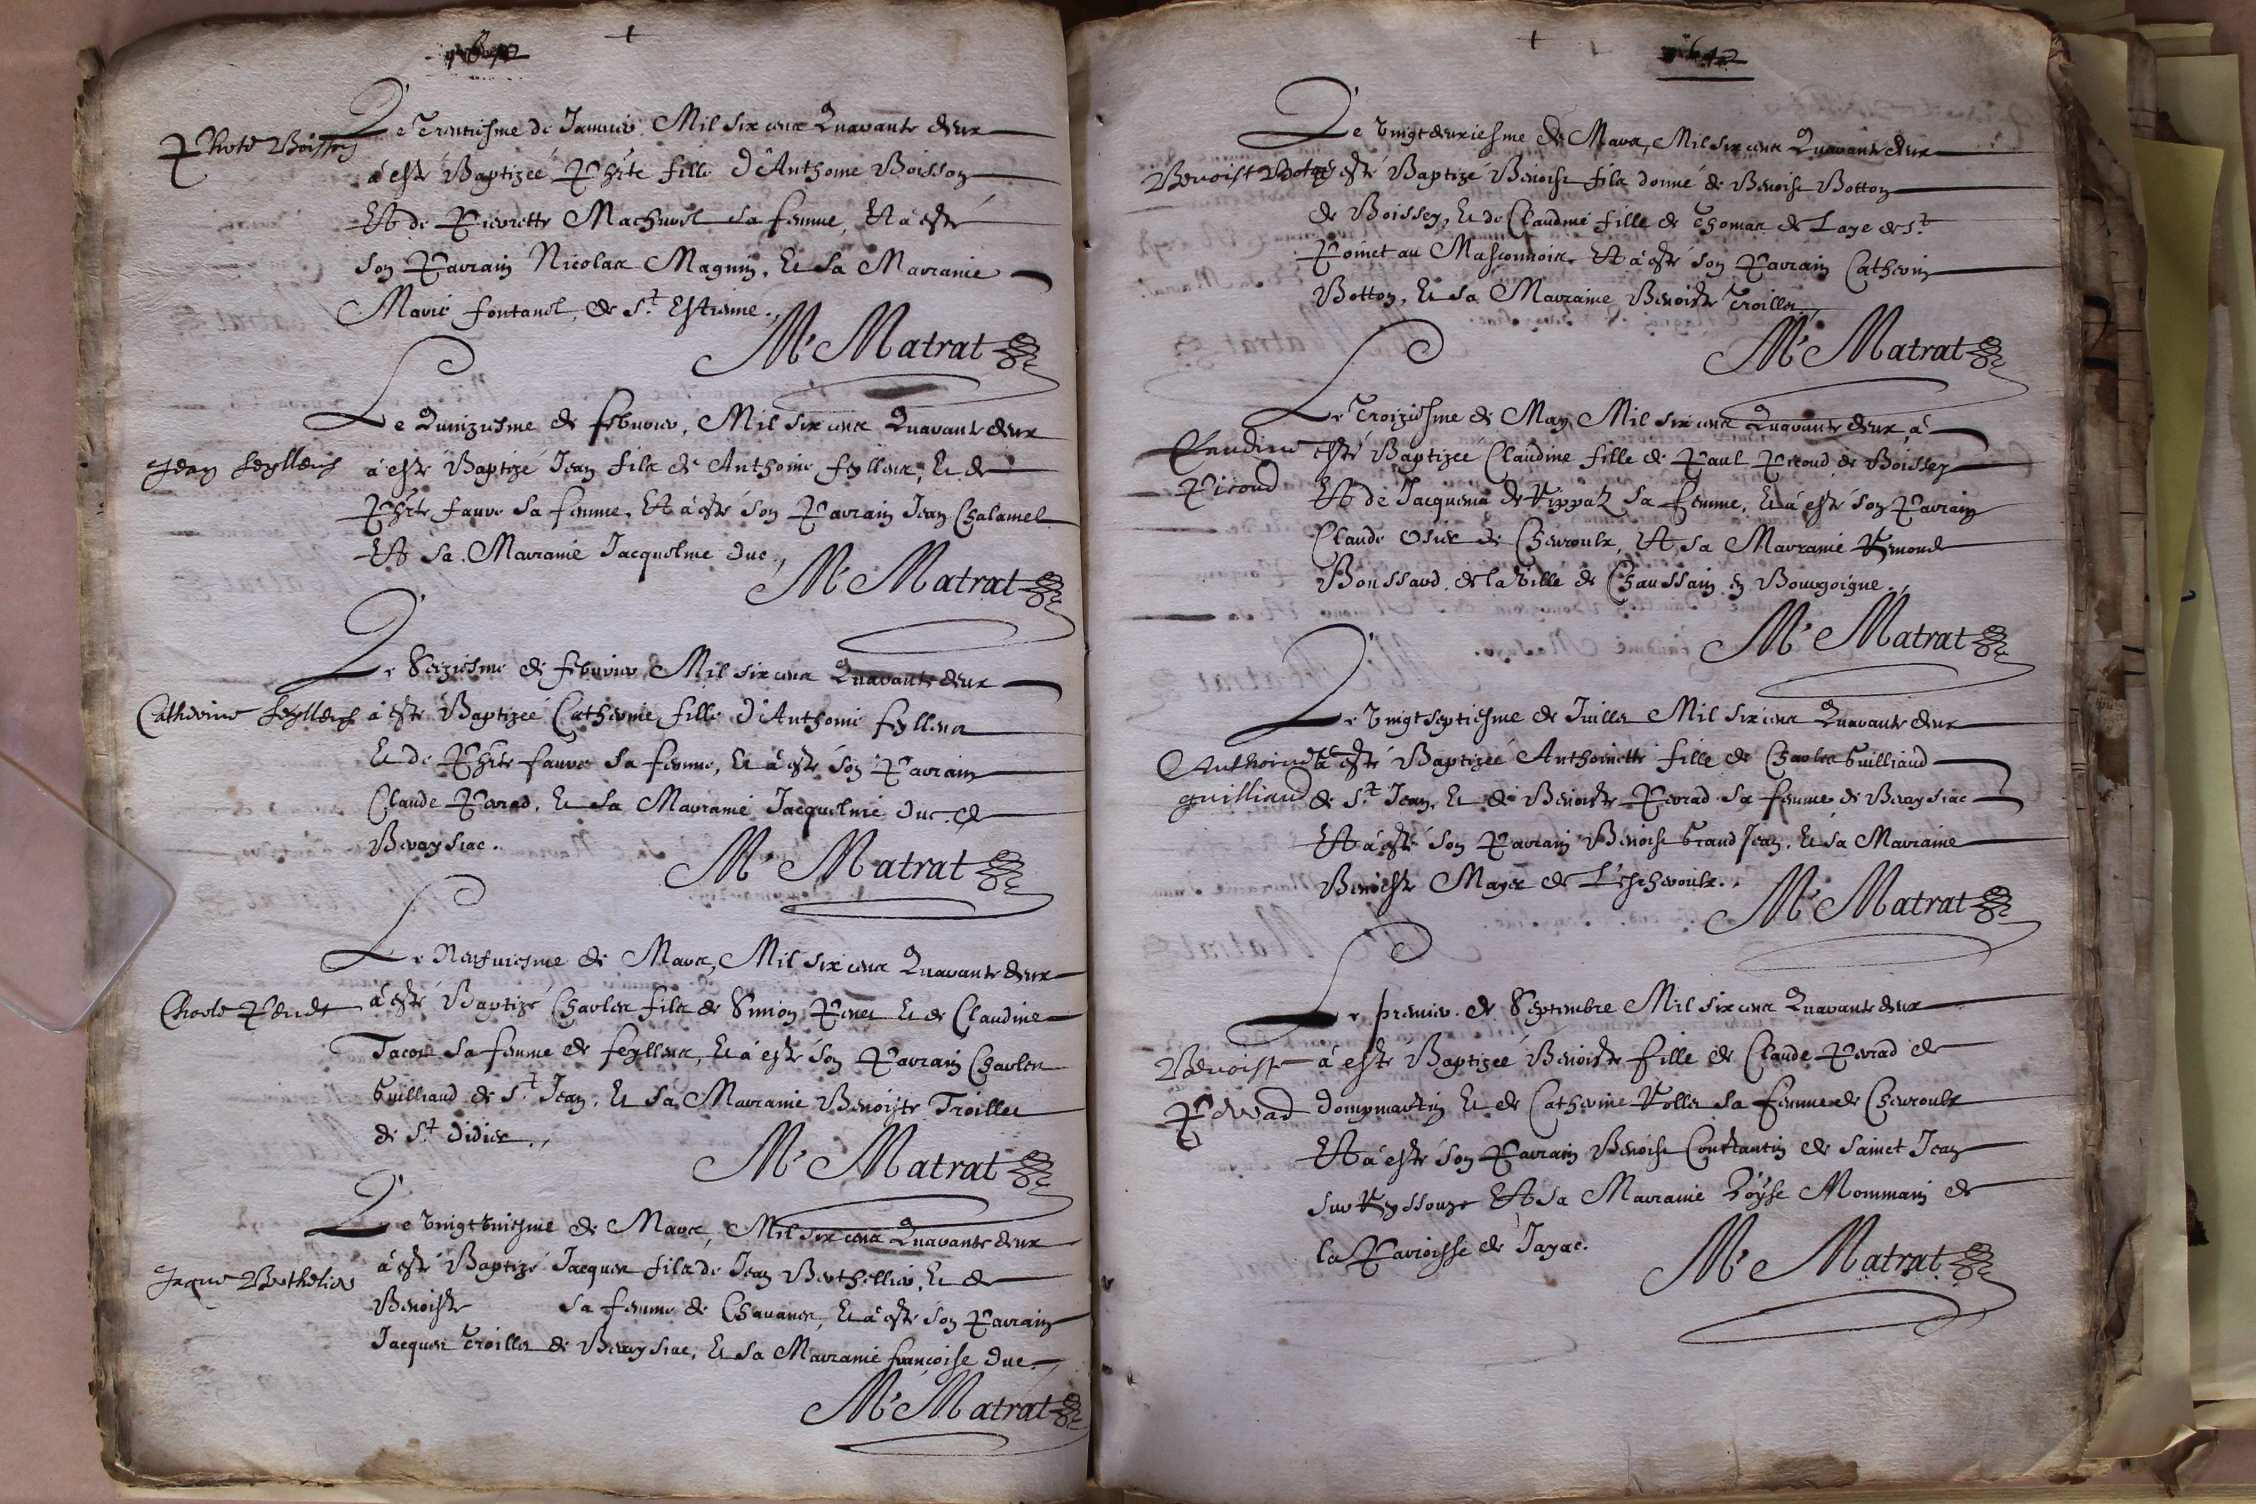 1642
Phrte Boisson
Le Trentiesme de Januier Mil six cens Quarante deux
à esté Baptizée Phrte fille d'Anthoine Boisson
Et de Pierrette Machurel sa femme, Et à esté
son Parrain Nicolas Magnin, Et sa Marraine
Marie fontanel, de St Estienne.
M. Matrat
Le Quinziesme de febvrier, Mil six cens Quarante deux
Jean feyllens
à esté Baptizé Jean fils de Anthoine feyllens, Et de
Phrte faure sa femme, Et à esté son Parrain Jean Chalamel
Et sa Marraine Jacquelme duc.
M. Matrat
Le Seiziesme de febvrier Mil six cens Quarante deux
Catherine feyllens
à esté Baptizée Catherine fille d'Anthoine feyllens
Et de Phrte faure sa femme, Et à esté son Parrain
Claude Perrad, Et sa Marraine Jacquelme duc de
Bereysiac.
M. Matrat
Le Neufuiesme de Mars, Mil six cens Quarante deux
Charle
à esté Baptizé Charles fils de Simon Et de Claudine
Tacon sa femme de feyllens, Et à esté son Parrain Charles
Guilliaud de St Jean, Et sa Marraine Benoiste Troillet
de St didier.
M. Matrat
Le Vingt Vniesme de Mars, Mil six cens Quarante deux
Jaque Berthelier
à esté Baptizé Jacques fils de Jean Berthellier, Et de
Benoiste sa femme de Chauanes, Et à esté son Parrain
Jacques Troillet de Bereysiac, Et sa Marraine françoise duc.
M. Matrat
1642
Le Vingt deuxiesme de Mars, Mil six cens Quarante deux
Benoist Botton
à esté Baptizé Benoist fils donné de Benoist Botton
de Boissey, Et de Claudine fille de Thomas de Laye de St
Poinct au Masconnois, Et à esté son Parrain Catherin
Botton, Et sa Marraine Benoiste Troillet.
M. Matrat
Le Troiziesme de May Mil six cens Quarante deux, à
Claudine
Picoud
esté Baptizée Claudine fille de Paul Picoud de Boissey
Et de Jacquema de sa femme, Et à esté son Parrain
Claude Osier de Cheuroulx, Et sa Marraine Remonde
Boussard, de la Ville de Chaussain en Bourgoigne.
M. Matrat
Le Vingt septiesme de Juillet Mil six cens Quarante deux
Anthoinette
guilliaud
à esté Baptizée Anthoinette fille de Charles Guilliaud
de St Jean, Et de Benoiste Perrad sa femme de Bereysiac
Et à esté son Parrain Benoist Grand Jean, Et sa Marraine
Benoiste Mayer de L'escheroulx.
M. Matrat
Le premier de Septembre Mil six cens Quarante deux
Benoiste
Perrad
à esté Baptizée Benoiste fille de Claude Perrad de
dompmartin Et de Catherine Rollet sa femme de Cheuroulx
Et à esté son Parrain Benoist Constantin de Sainct Jean
sur Reyssouze Et sa Marraine Loÿse Mommain de
la Parroisse de Jayac.
M. Matrat